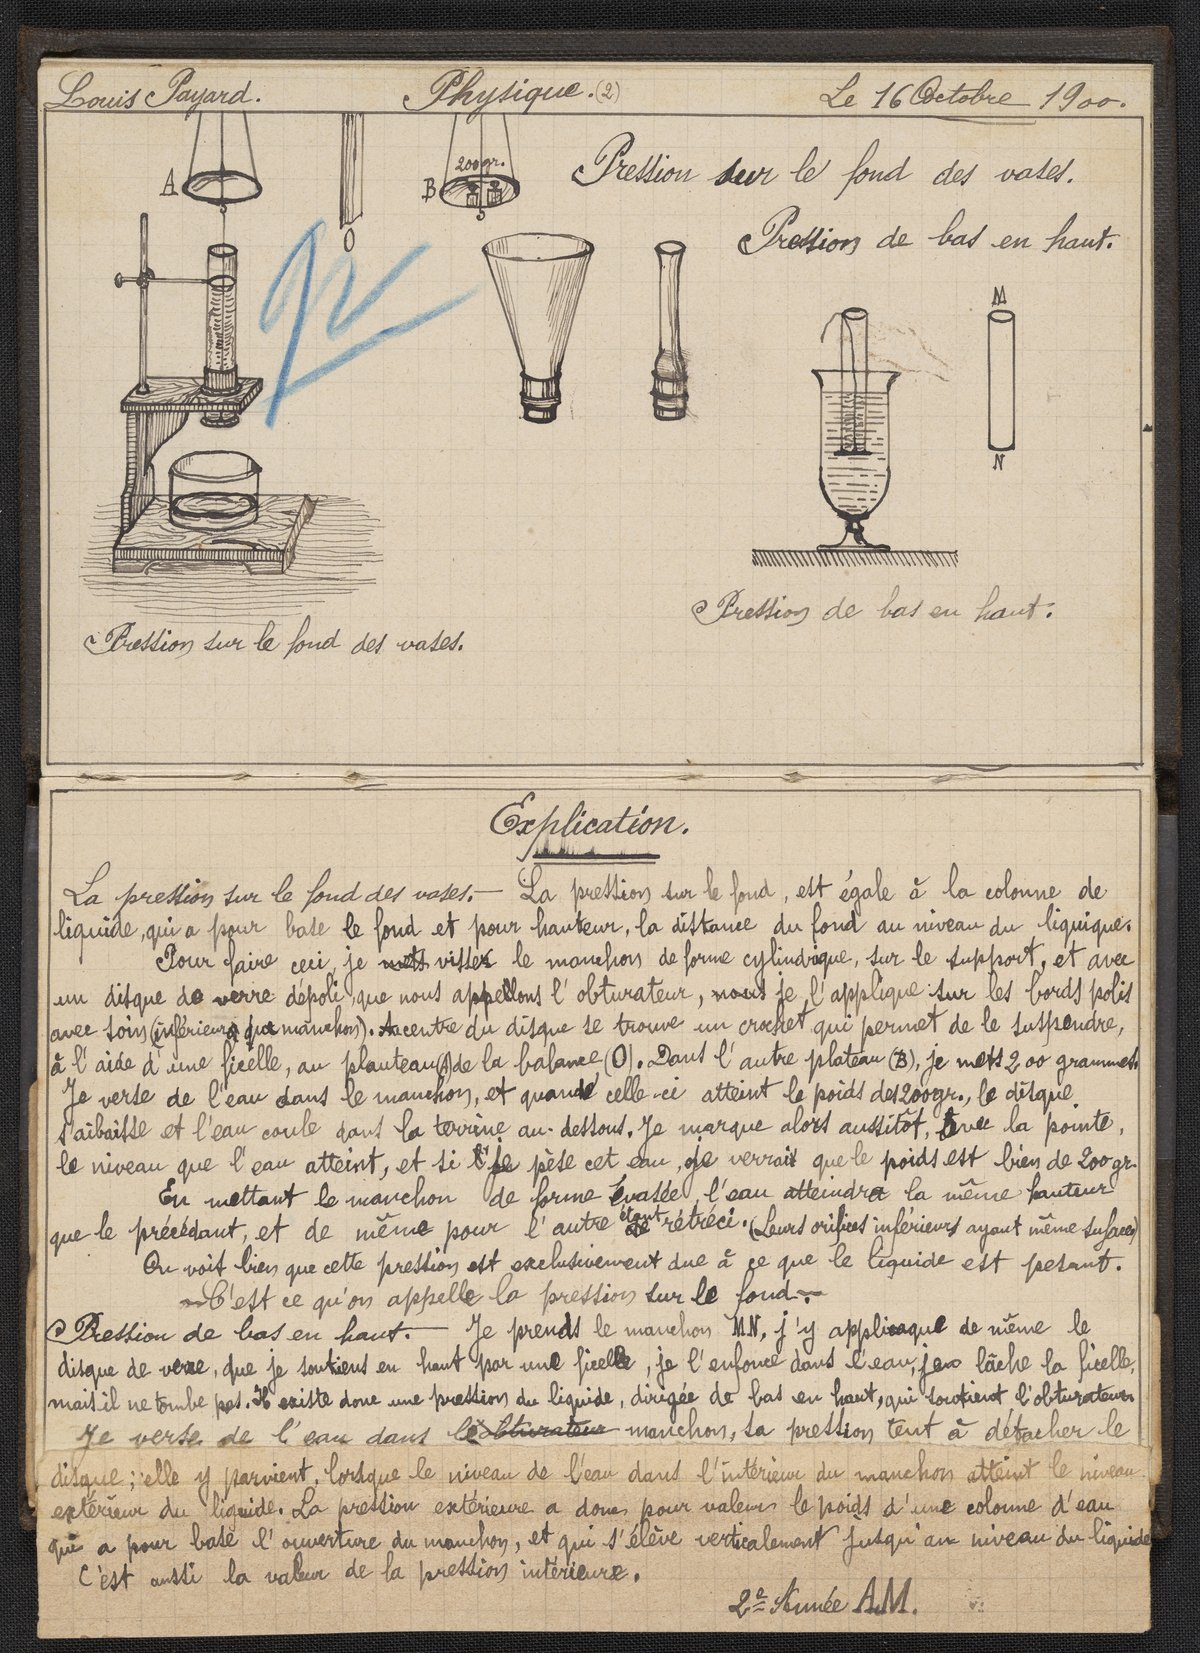 Louis Payard. Physique. (2) Le 16 Octobre 1900.
A
200 gr.
B
O
Pression sur le fond des vases.
Pression de bas en haut.
M
N
Pression de bas en haut.
Pression sur le fond des vases.
Explication.
La pression sur le fond des vases.— La pression sur le fond, est égale à la colonne de
liquide, qui a pour base le fond et pour hauteur, la distance du fond au niveau du liquique.
Pour faire ceci, je mets visser le manchon de forme cylindrique, sur le support, et avec
un disque de verre dépoli, que nous appellons l'obturateur, nous je l'applique sur les bords polis
avec soin (inférieurs du manchon). Au centre du disque se trouve un crochet qui permet de le suspendre,
à l'aide d'une ficelle, au planteau (A) de la balance (O). Dans l'autre plateau (B), je mets 200 grammes.
Je verse de l'eau dans le manchon, et quand celle-ci atteint le poids des 200 gr., le disque
s'aibaisse et l'eau coule dans la terrine au-dessous. Je marque alors aussitôt, avec la pointe,
le niveau que l'eau atteint, et si je pèse cet eau, je verrais que le poids est bien de 200 gr.
En mettant le manchon de forme évasée, l'eau atteindra la même hauteur
que le précédant, et de même pour l'autre étant rétréci. (Leurs orifices inférieurs ayant même sufaces)
On voit bien que cette pression est exclusivement due à ce que le liquide est pesant.
C'est ce qu'on appelle la pression sur le fond.
Pression de bas en haut.— Je prends le manchon MN, j'y applique de même le
disque de verre, que je soutiens en haut par une ficelle, je l'enfonce dans l'eau, je lâche la ficelle,
mais il ne tombe pas. Il existe donc une pression du liquide, dirigée de bas en haut, qui soutient l'obturateur.
Je verse de l'eau dans le obturateur manchon, sa pression tent à détacher le
disque; elle y parvient, lorsque le niveau de l'eau dans l'intérieur du manchon atteint le niveau
extérieur du liquide. La pression extérieure a donc pour valeur le poids d'une colonne d'eau
qui a pour base l'ouverture du manchon, et qui s'élève verticalement jusqu'au niveau du liquide
C'est aussi la valeur de la pression intérieure.
2e Année A.M.